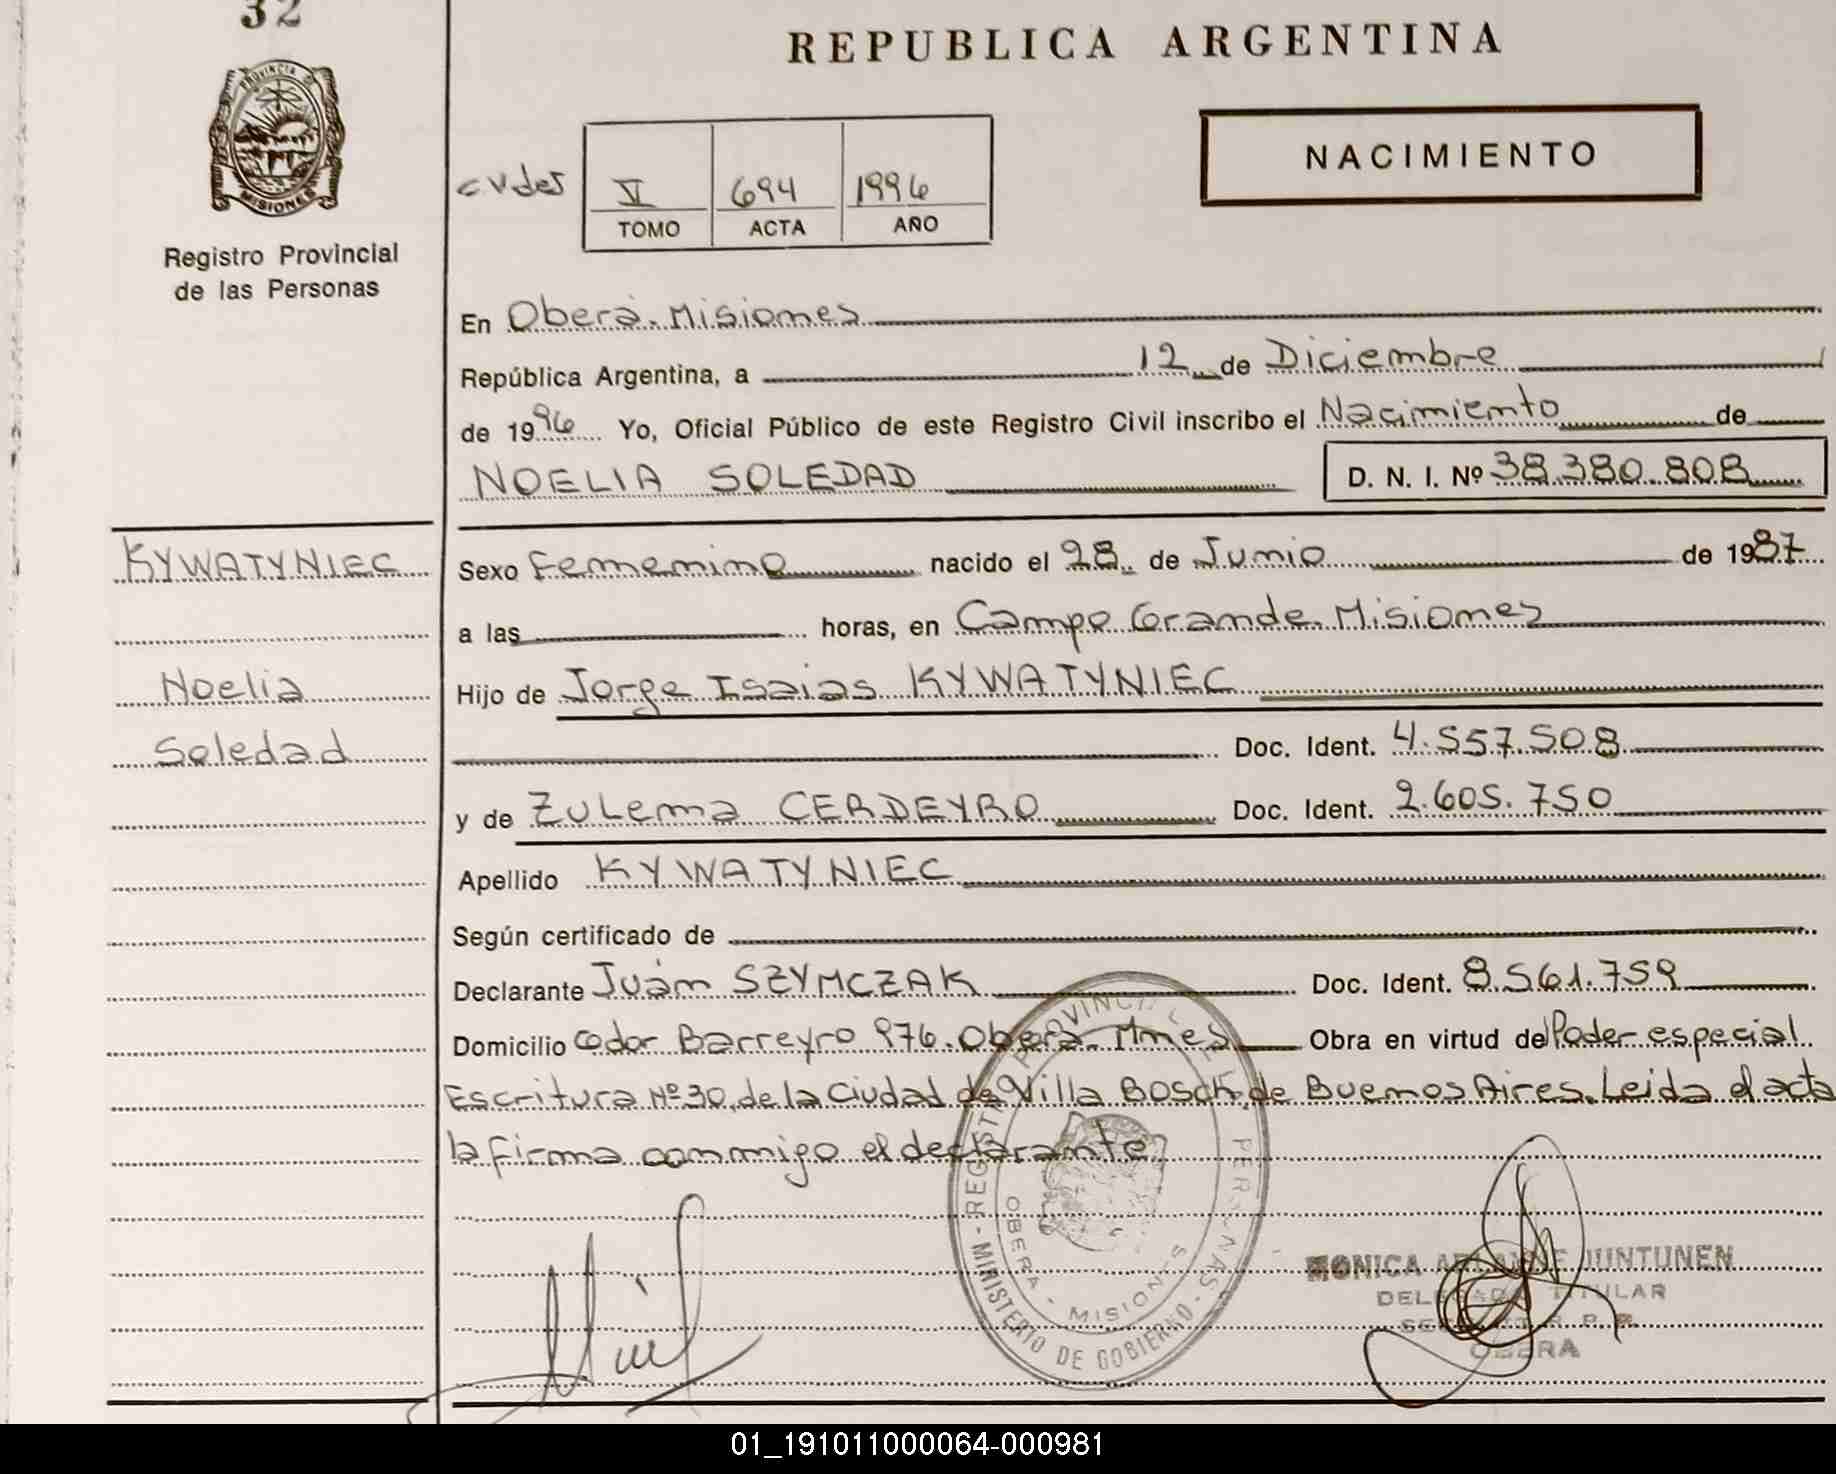 32
REPUBLICA ARGENTINA
PROVINCIA D
MISIONES
Registro Provincial
de las Personas
NACIMIENTO
V 694 1996
TOMO ACTA AÑO
En Oberá. Misiones
República Argentina, a 12 de Diciembre
de 1996 Yo, Oficial Público de este Registro Civil inscribo el Nacimiento de
NOELIA SOLEDAD D. N. I. Nº 38.380.808
KYWATYNIEC
Noelia
Soledad
Sexo Femenino nacido el 28 de Junio de 1987
a las horas, en Campo Grande. Misiones
Hijo de Jorge Isaias KYWATYNIEC
Doc. Ident. 4.557.508
y de Zulema CERDEYRO Doc. Ident. 2.605.750
Apellido KYWATYNIEC
Según certificado de
Declarante Juán SZYMCZAK Doc. Ident. 8.561.759
Domicilio Cdor Barreyro 976. Oberá. Mnes Obra en virtud de Poder especial
Escritura Nº 30, de la Ciudad de Villa Bosch, de Buenos Aires. Leida el acta
la firma conmigo el declarante
OBERA - MISIONES
MINISTERIO DE GOBIERNO
MONICA JUNTUNEN
DELEGADA TITULAR
OBERA
01_191011000064-000981